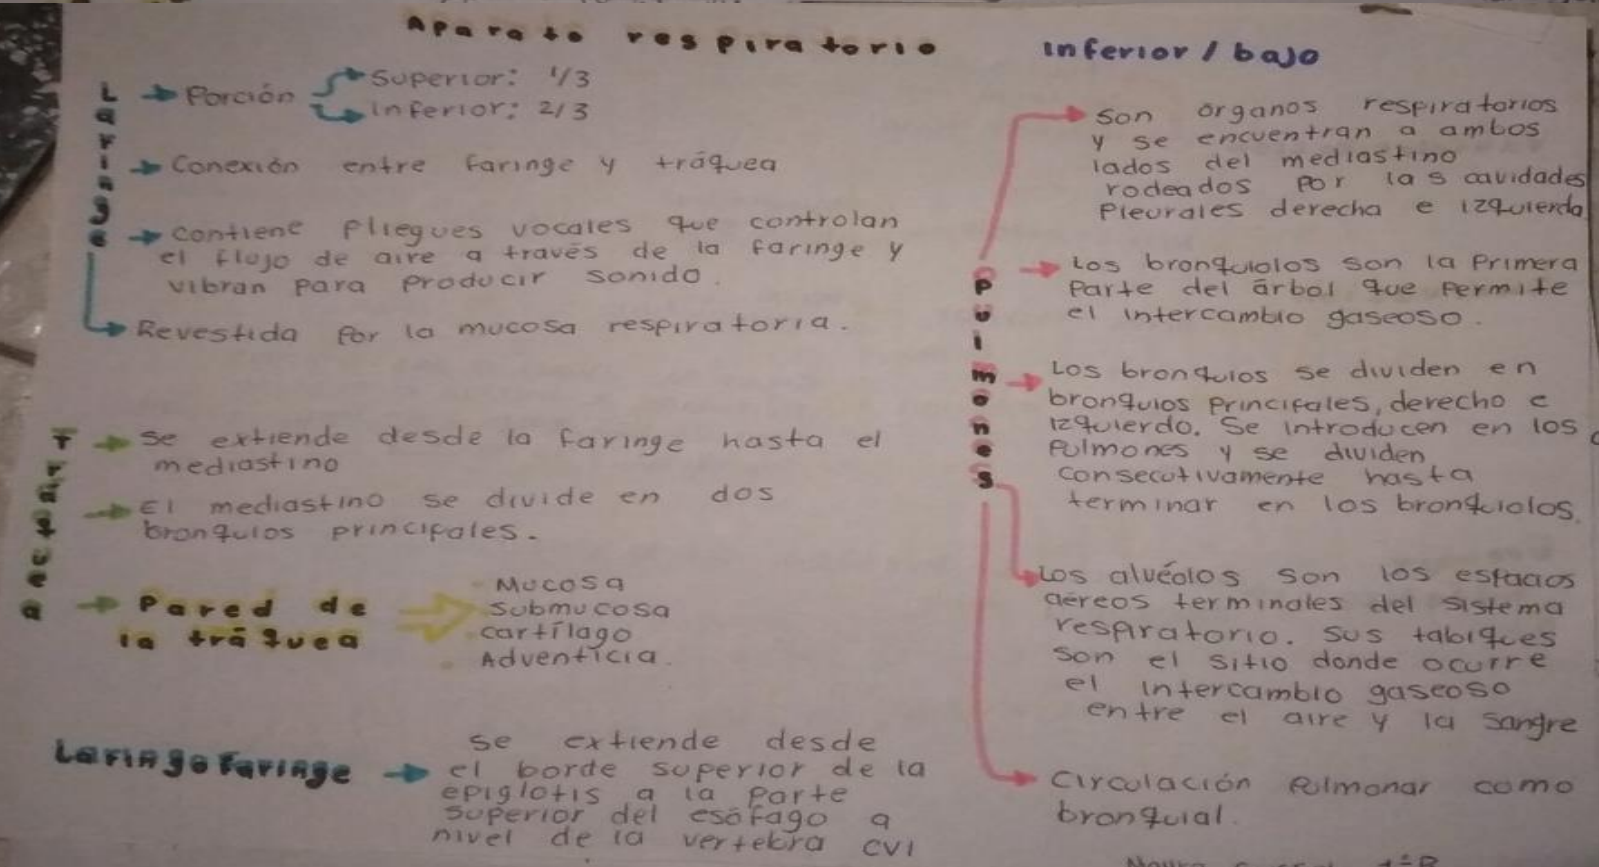 Aparato respiratorio
Laringe
Porción
Superior: 1/3
Inferior: 2/3
Conexión entre faringe y tráquea
Contiene Pliegues vocales que controlan
el flujo de aire a través de la faringe y
vibran para producir sonido.
Revestida Por la mucosa respiratoria.
Tráquea
Se extiende desde la faringe hasta el
mediastino
El mediastino se divide en dos
bronquios principales.
Pared de
la tráquea
Mucosa
Submucosa
cartílago
Adventicia.
Laringofaringe
Se extiende desde
el borde superior de la
epiglotis a la Parte
Superior del esófago a
nivel de la vertebra CVI
Inferior / bajo
Pulmones
Son órganos respiratorios
y se encuentran a ambos
lados del mediastino
rodeados Por las cavidades
Pleurales derecha e izquierda
Los bronquiolos son la Primera
Parte del árbol que Permite
el intercambio gaseoso.
Los bronquios se dividen en
bronquios Principales, derecho e
izquierdo. Se introducen en los
Pulmones y se dividen
consecutivamente hasta
terminar en los bronquiolos.
Los alvéolos son los espacios
aéreos terminales del sistema
respiratorio. Sus tabiques
son el sitio donde ocurre
el intercambio gaseoso
entre el aire y la sangre
Circulación Pulmonar como
bronquial.